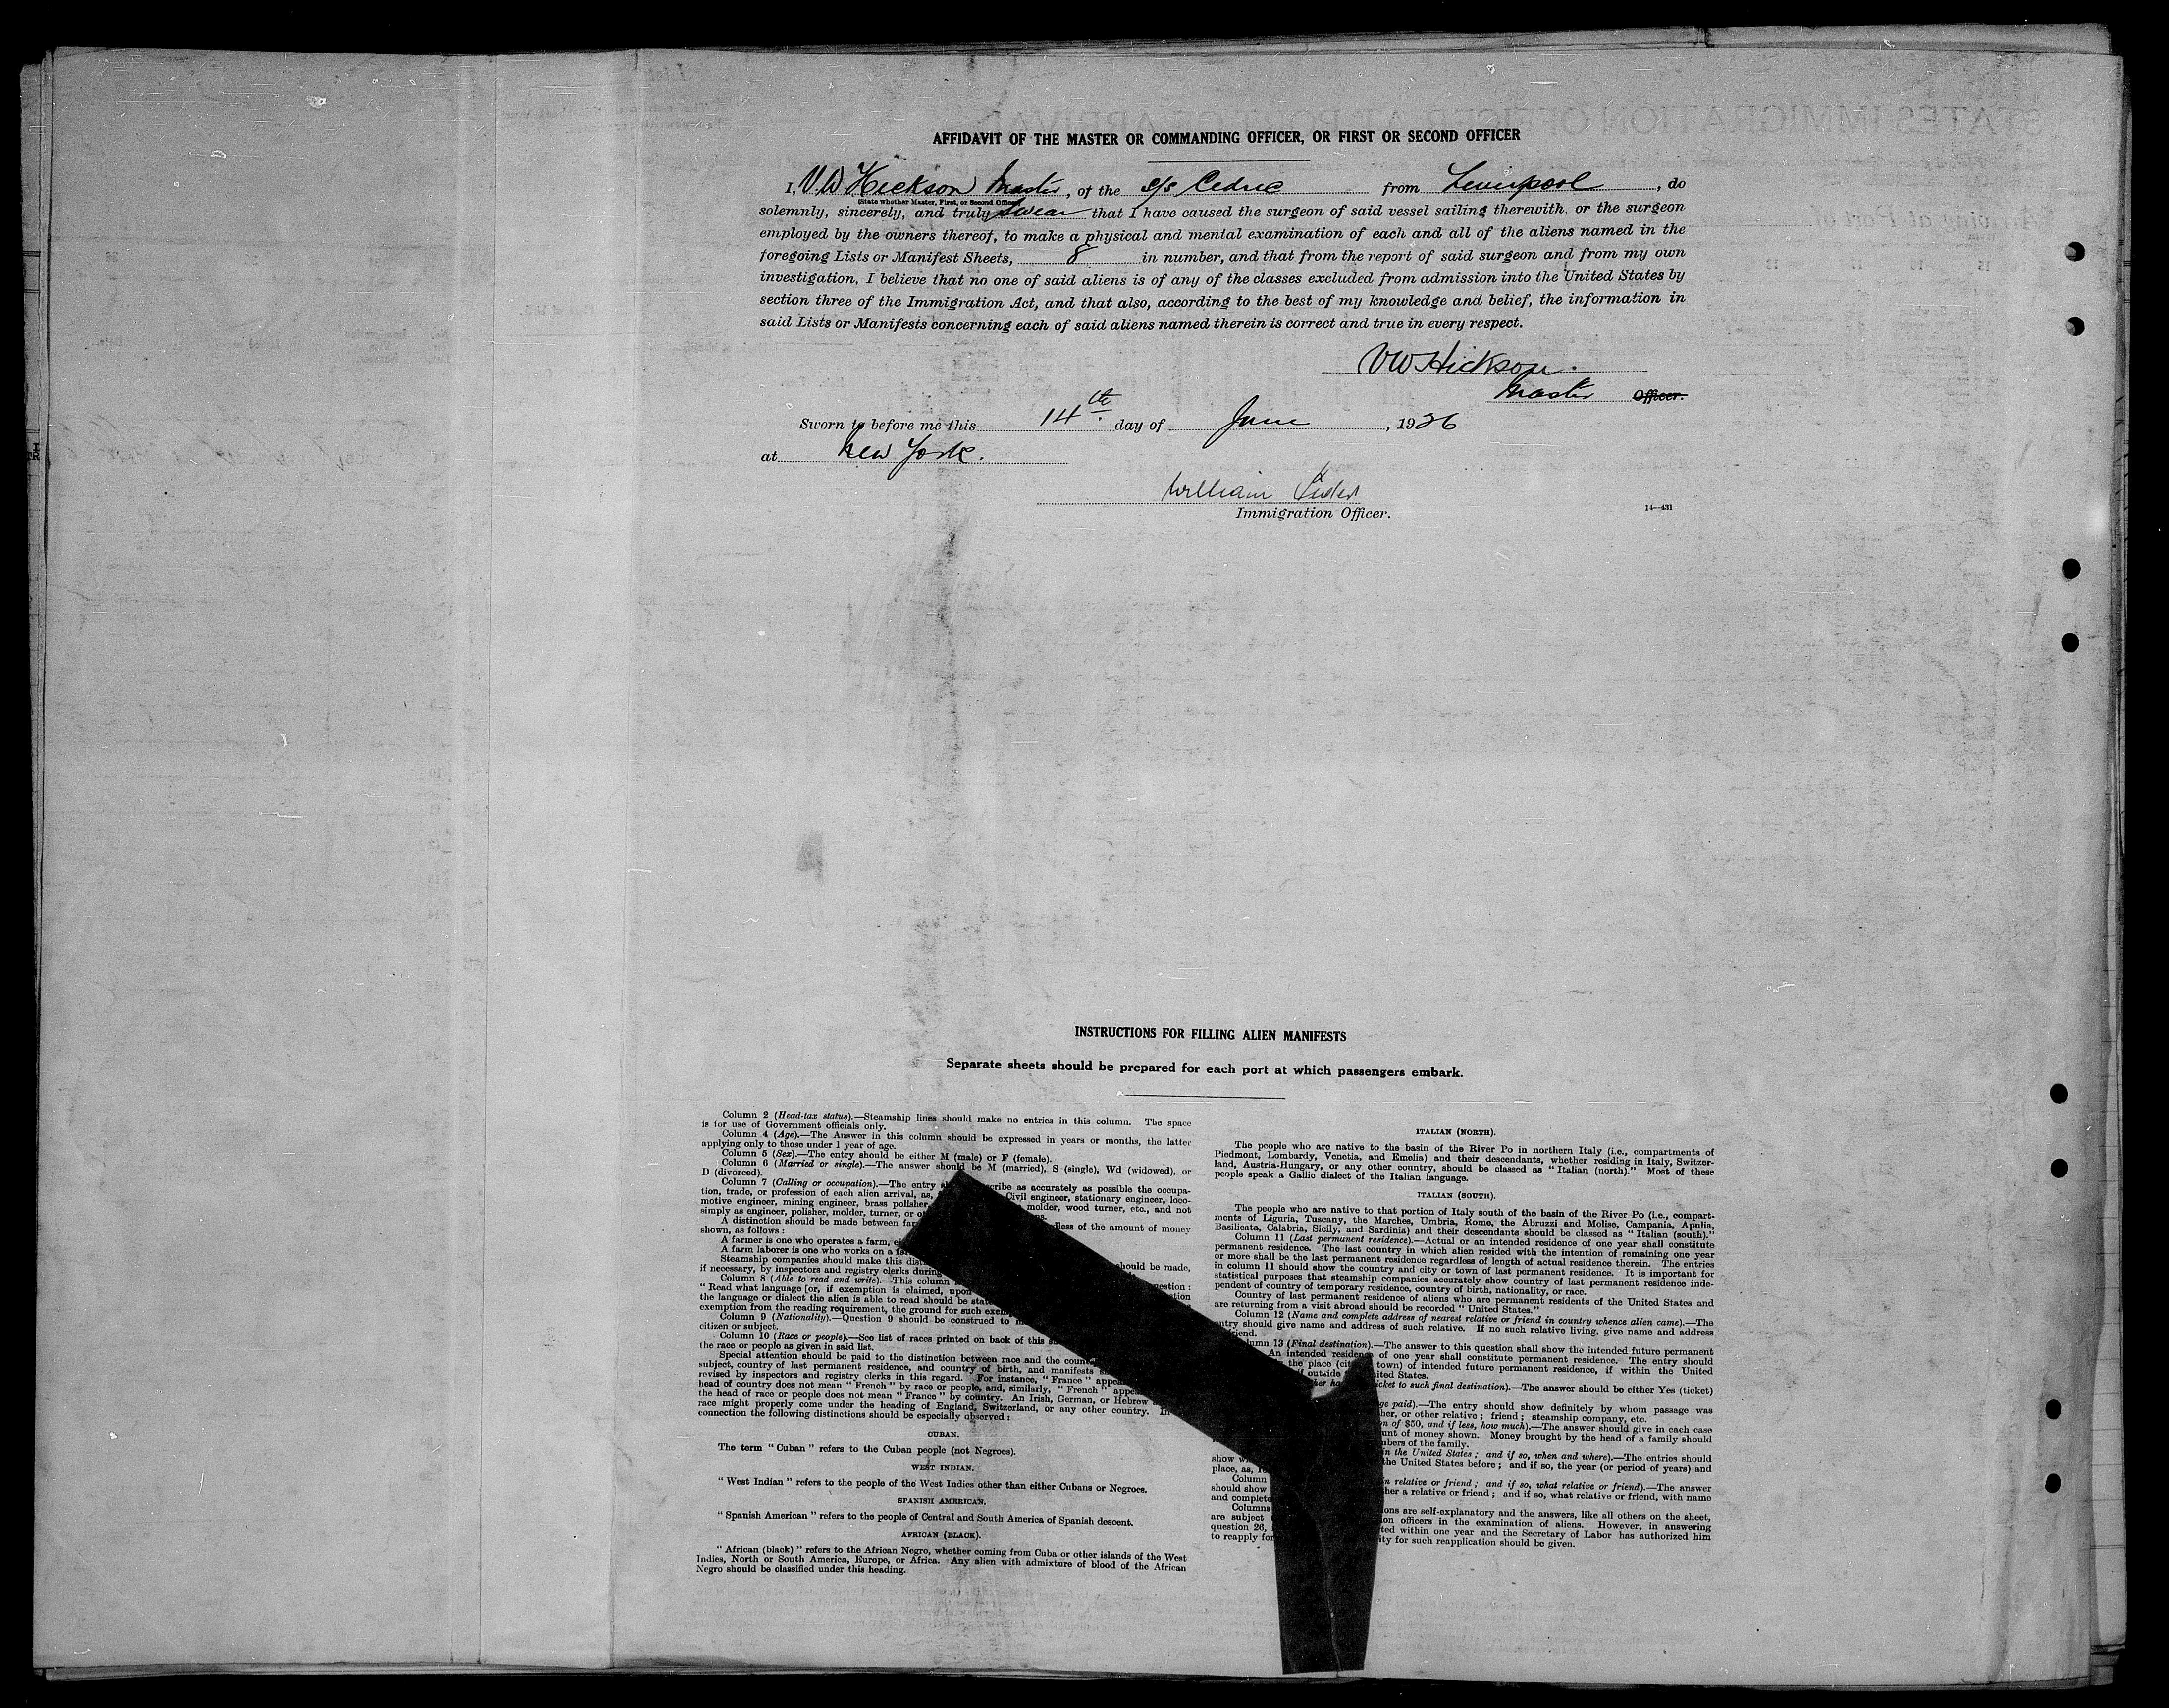 AFFIDAVIT OF THE MASTER OR COMMANDING OFFICER, OR FIRST OR SECOND OFFICER
I, V.W Hickson Master, of the s/s Cedric from Liverpool, do
(State whether Master, First, or Second Officer)
solemnly, sincerely, and truly swear that I have caused the surgeon of said vessel sailing therewith, or the surgeon
employed by the owners thereof, to make a physical and mental examination of each and all of the aliens named in the
foregoing Lists or Manifest Sheets, 8 in number, and that from the report of said surgeon and from my own
investigation, I believe that no one of said aliens is of any of the classes excluded from admission into the United States by
section three of the Immigration Act, and that also, according to the best of my knowledge and belief, the information in
said Lists or Manifests concerning each of said aliens named therein is correct and true in every respect.
VW Hickson.
Master Officer.
Sworn to before me this 14th day of June, 1926
at New York.
William
Immigration Officer.
14—431
INSTRUCTIONS FOR FILLING ALIEN MANIFESTS
Separate sheets should be prepared for each port at which passengers embark.
Column 2 (Head-tax status).—Steamship lines should make no entries in this column. The space
is for use of Government officials only.
Column 4 (Age).—The Answer in this column should be expressed in years or months, the latter
applying only to those under 1 year of age.
Column 5 (Sex).—The entry should be either M (male) or F (female).
Column 6 (Married or single).—The answer should be M (married), S (single), Wd (widowed), or
D (divorced).
Column 7 (Calling or occupation).—The entry scribe as accurately as possible the occupa-
tion, trade, or profession of each alien arrival, as, Civil engineer, stationary engineer, loco-
motive engineer, mining engineer, brass polisher, molder, wood turner, etc., and not
simply as engineer, polisher, molder, turner, or
A distinction should be made between dless of the amount of money
shown, as follows:
A farmer is one who operates a farm,
A farm laborer is one who works on a
Steamship companies should make this should be made,
if necessary, by inspectors and registry clerks during
Column 8 (Able to read and write).—This column uestion:
"Read what language [or, if exemption is claimed, upon
the language or dialect the alien is able to read should be
exemption from the reading requirement, the ground for such
Column 9 (Nationality).—Question 9 should be construed to
citizen or subject.
Column 10 (Race or people).—See list of races printed on back of this
the race or people as given in said list.
Special attention should be paid to the distinction between race and the
subject, country of last permanent residence, and country of birth, and manifests
revised by inspectors and registry clerks in this regard. For instance, "France"
head of country does not mean "French" by race or people, and, similarly, "French"
the head of race or people does not mean "France" by country. An Irish, German, or Hebrew
race might properly come under the heading of England, Switzerland, or any other country. In
connection the following distinctions should be especially observed:
CUBAN.
The term "Cuban" refers to the Cuban people (not Negroes).
WEST INDIAN.
"West Indian" refers to the people of the West Indies other than either Cubans or Negroes.
SPANISH AMERICAN.
"Spanish American" refers to the people of Central and South America of Spanish descent.
AFRICAN (BLACK).
"African (black)" refers to the African Negro, whether coming from Cuba or other islands of the West
Indies, North or South America, Europe, or Africa. Any alien with admixture of blood of the African
Negro should be classified under this heading.
ITALIAN (NORTH).
The people who are native to the basin of the River Po in northern Italy (i.e., compartments of
Piedmont, Lombardy, Venetia, and Emelia) and their descendants, whether residing in Italy, Switzer-
land, Austria-Hungary, or any other country, should be classed as "Italian (north)." Most of these
people speak a Gallic dialect of the Italian language.
ITALIAN (SOUTH).
The people who are native to that portion of Italy south of the basin of the River Po (i.e., compart-
ments of Liguria, Tuscany, the Marches, Umbria, Rome, the Abruzzi and Molise, Campania, Apulia,
Basilicata, Calabria, Sicily, and Sardinia) and their descendants should be classed as "Italian (south)."
Column 11 (Last permanent residence).—Actual or an intended residence of one year shall constitute
permanent residence. The last country in which alien resided with the intention of remaining one year
or more shall be the last permanent residence regardless of length of actual residence therein. The entries
in column 11 should show the country and city or town of last permanent residence. It is important for
statistical purposes that steamship companies accurately show country of last permanent residence inde-
pendent of country of temporary residence, country of birth, nationality, or race.
Country of last permanent residence of aliens who are permanent residents of the United States and
are returning from a visit abroad should be recorded "United States."
Column 12 (Name and complete address of nearest relative or friend in country whence alien came).—The
entry should give name and address of such relative. If no such relative living, give name and address
friend.
Column 13 (Final destination).—The answer to this question shall show the intended future permanent
An intended residence of one year shall constitute permanent residence. The entry should
the place (city town) of intended future permanent residence, if within the United
outside United States.
ticket to such final destination).—The answer should be either Yes (ticket)
ge paid).—The entry should show definitely by whom passage was
her, or other relative; friend; steamship company, etc.
n of $50, and if less, how much).—The answer should give in each case
unt of money shown. Money brought by the head of a family should
mbers of the family.
in the United States; and if so, when and where).—The entries should
show the United States before; and if so, the year (or period of years) and
place, as,
Column in relative or friend; and if so, what relative or friend).—The answer
should show her a relative or friend; and if so, what relative or friend, with name
and complete
Columns ons are self-explanatory and the answers, like all others on the sheet,
are subject on officers in the examination of aliens. However, in answering
question 26, ted within one year and the Secretary of Labor has authorized him
to reapply for ity for such reapplication should be given.